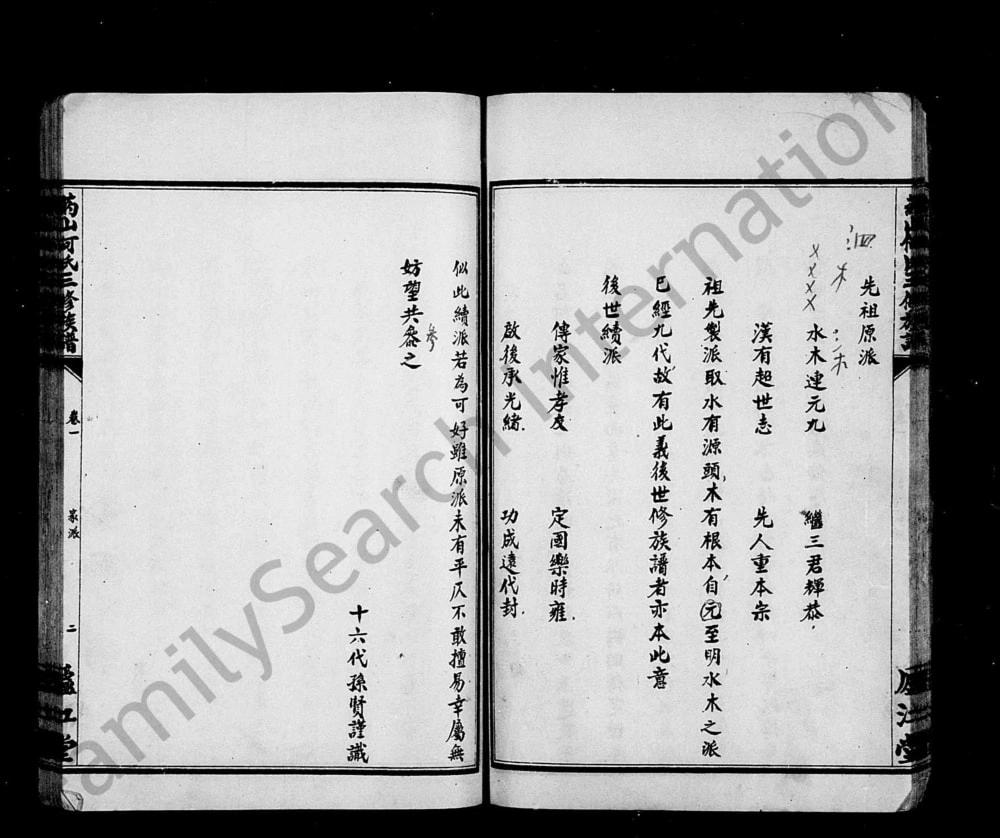 先祖原派
水木連元九　繼三君輝恭
漢有超世志　先人重本宗
祖先製派取水有源頭木有根本自元至明水木之派
已經九代故有此義後世修族譜者亦本此意
後世續派
傳家惟孝友　定國樂時雍
啟後承光緒　功成遠代封
似此續派若為可好雖原派未有平仄不敢擅易幸屬無
參
妨望共叅之
十六代孫賢謹識
何氏三修族譜
卷一
家派
二
廬江堂
廬江堂
FamilySearch International